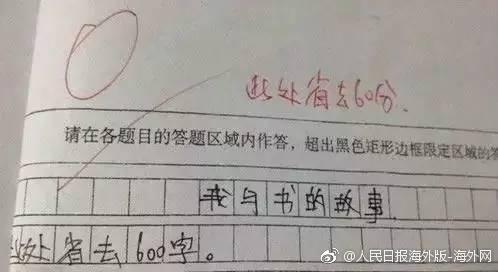 此处省去60分.
请在各题目的答题区域内作答，超出黑色矩形边框限定区域的答
我与书的故事
此处省去600字。
@人民日报海外版-海外网